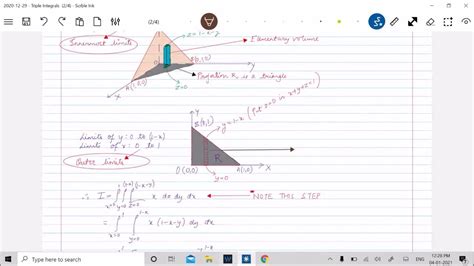 2020-12-29 - Triple Integrals (2/4) - Scribble Ink
(2/4)
Innermost limits
z=1-x-y
Elementary volume
B(0,1,0)
z=0
Projection R is a triangle
A(1,0,0)
X
Y
B(0,1)
y=1-x (Put z=0 in x+y+z=1)
Limits of y: 0 to (1-x)
Limits of x: 0 to 1
Outer limits
R
O (0,0)
y=0
A(1,0)
X
∴ I = ∫ x=0 1 ∫ y=0 (1-x) ∫ z=0 (1-x-y) x dz dy dx ← NOTE THIS STEP
= ∫ x=0 1 ∫ y=0 1-x x (1-x-y) dy dx
Type here to search
ENG
12:26 PM
04-01-2021